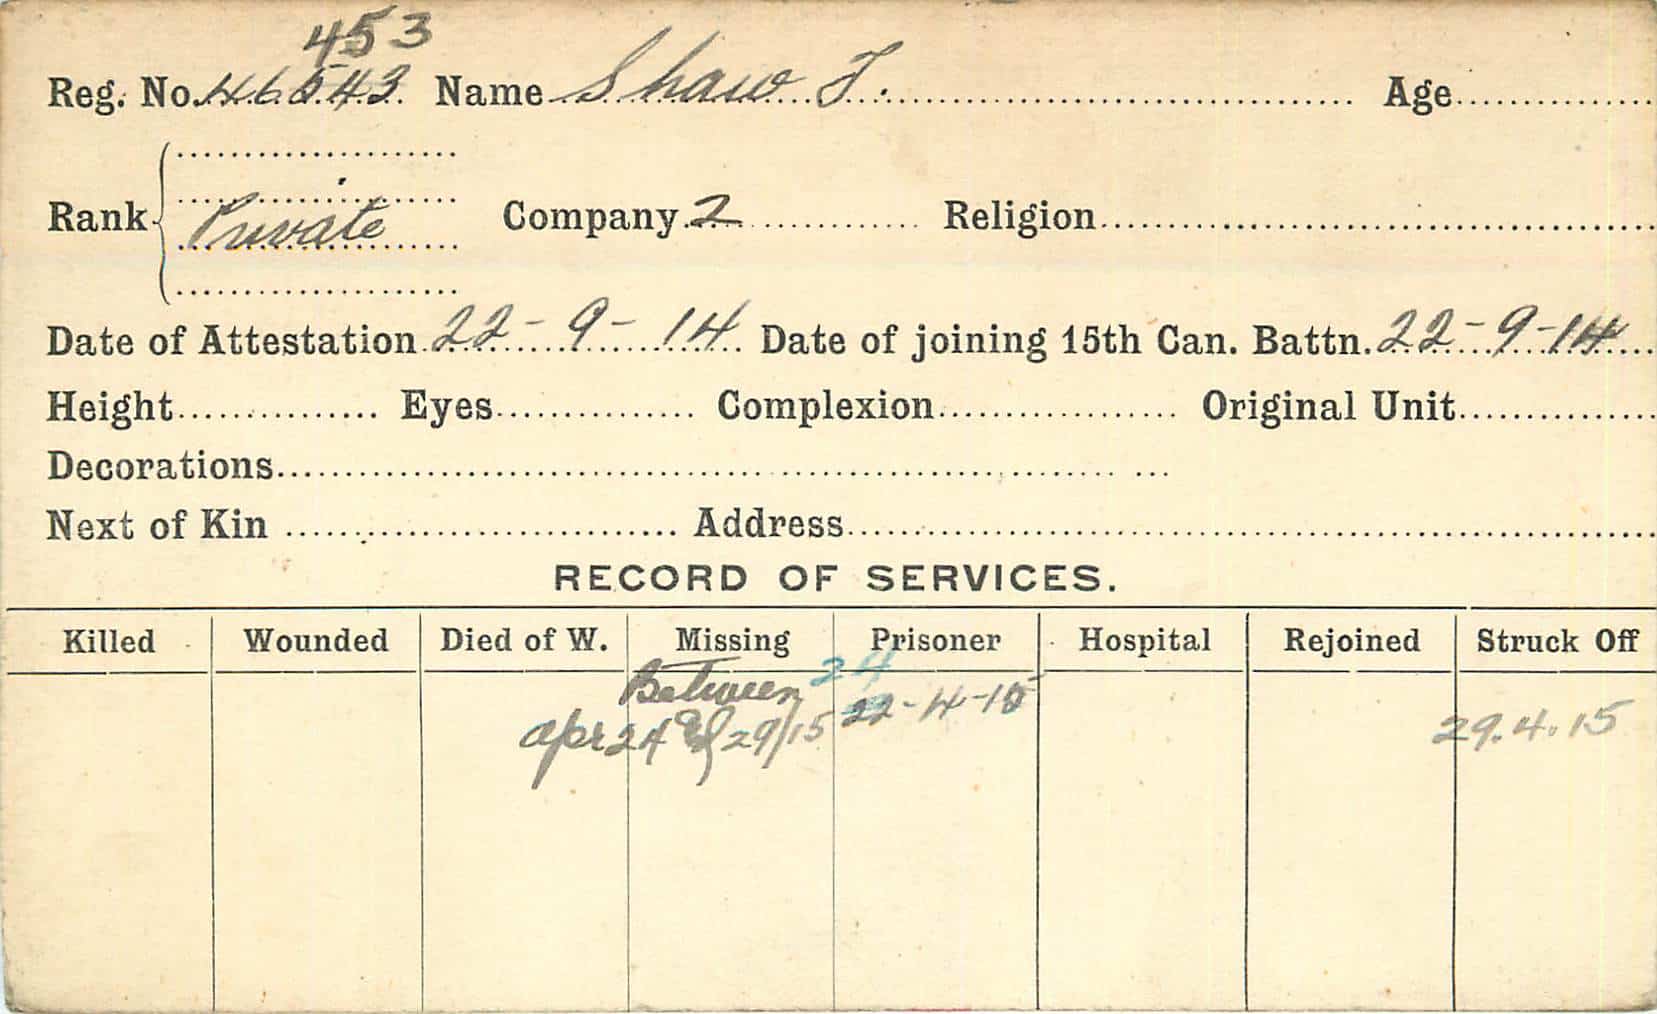 453
Reg. No. 46543 Name Shaw T. Age
Rank Private Company 2 Religion
Date of Attestation 22-9-14 Date of joining 15th Can. Battn. 22-9-14
Height Eyes Complexion Original Unit
Decorations
Next of Kin Address
RECORD OF SERVICES.
Killed Wounded Died of W. Missing Prisoner Hospital Rejoined Struck Off
Between 24
apr 24 & 29/15 22-4-15 29.4.15